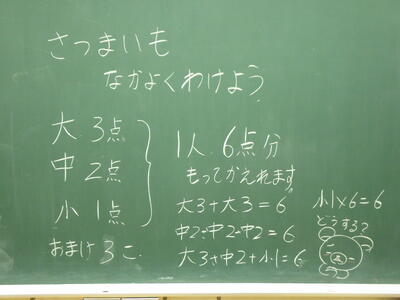 さつまいも
なかよくわけよう
大 3点
中 2点
小 1点
おまけ 3こ
1人 6点分
もってかえれます
大3+大3=6
中2+中2+中2=6
大3+中2+小1=6
小1×6=6
どうする?